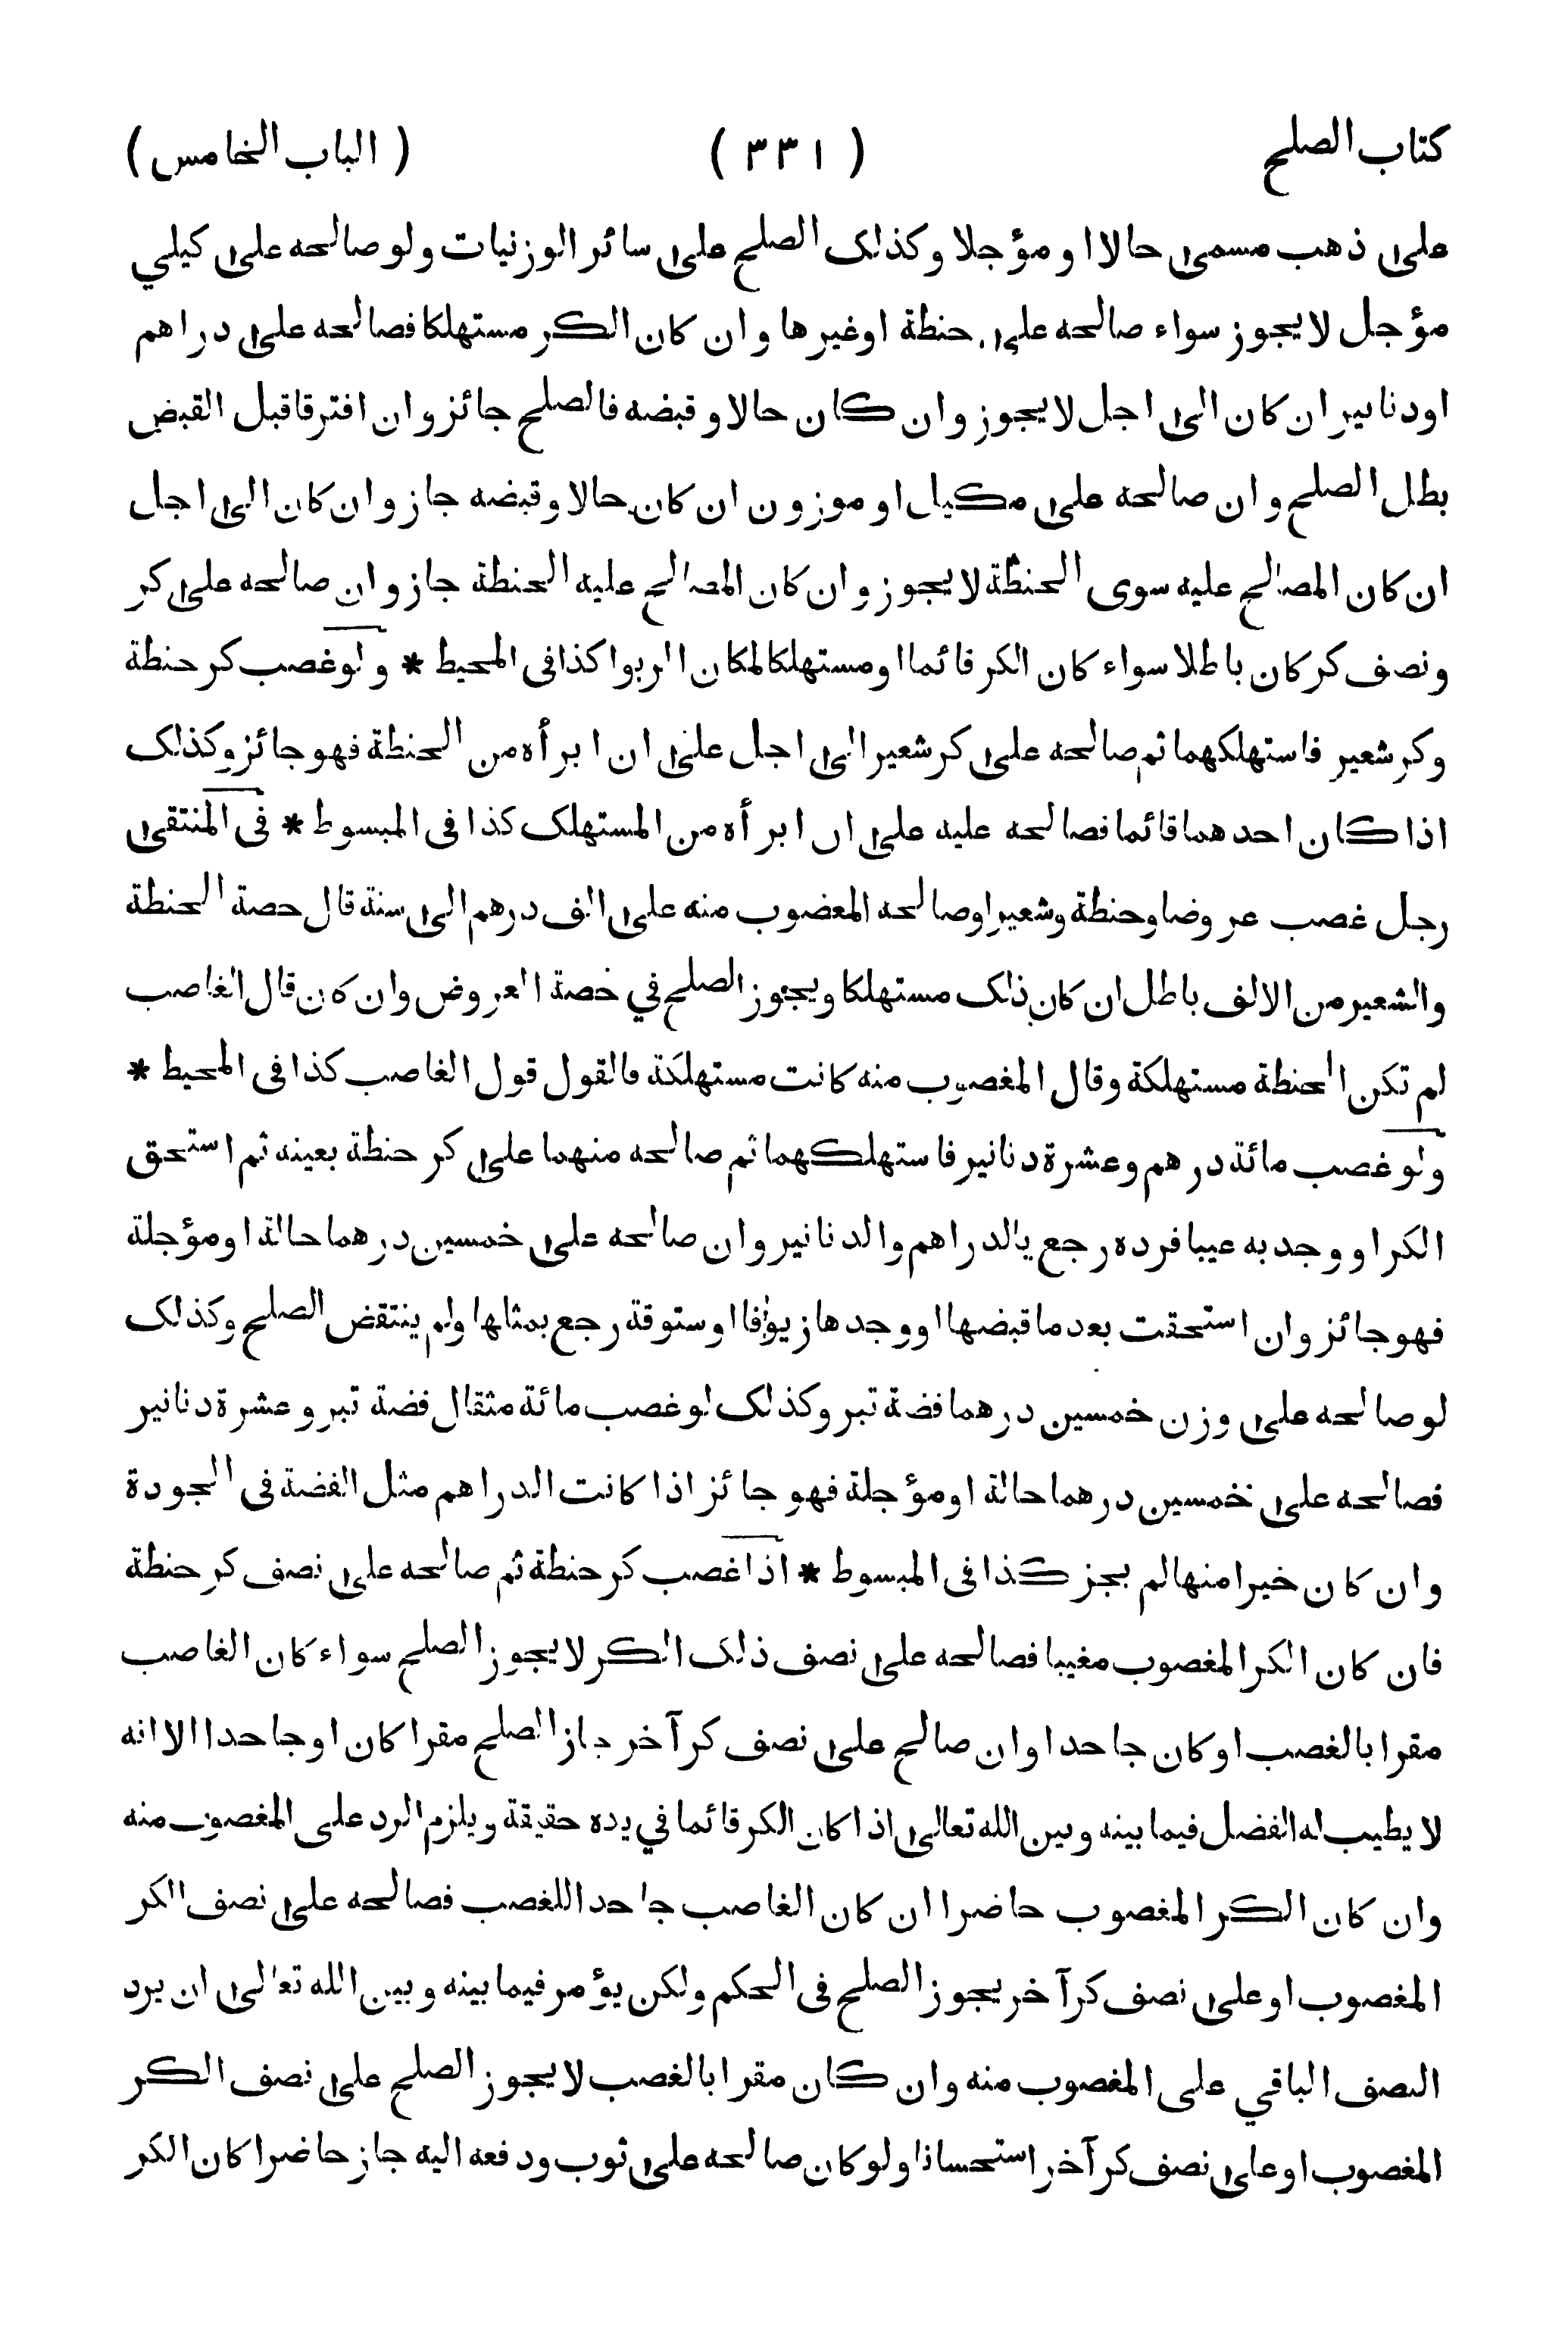 كتاب الصلح ( ٣٣١ ) ( الباب الخامس )
على ذهب مسمى حالا او مؤجلا وكذلك الصلح على سائر الوزنيات ولو صالحه على كيلي
مؤجل لا يجوز سواء صالحه على حنطة او غيرها وان كان الكر مستهلكا فصالحه على دراهم
او دنانير ان كان الى اجل لا يجوز وان كان حالا وقبضه فالصلح جائز وان افترقا قبل القبض
بطل الصلح وان صالحه على مكيل او موزون ان كان حالا وقبضه جاز وان كان الى اجل
ان كان المصالح عليه سوى الحنطة لا يجوز وان كان المصالح عليه الحنطة جاز وان صالحه على كر
ونصف كر كان باطلا سواء كان الكر قائما او مستهلكا لمكان الربوا كذا فى المحيط * ولو غصب كر حنطة
وكر شعير فاستهلكهما ثم صالحه على كر شعير الى اجل على ان ابرأه من الحنطة فهو جائز وكذلك
اذا كان احدهما قائما فصالحه عليه على ان ابرأه من المستهلك كذا فى المبسوط * فى المنتقى
رجل غصب عروضا وحنطة وشعيرا وصالحه المغضوب منه على الف درهم الى سنة قال حصة الحنطة
والشعير من الالف باطل ان كان ذلك مستهلكا ويجوز الصلح في حصة العروض وان كان قال الغاصب
لم تكن الحنطة مستهلكة وقال المغصوب منه كانت مستهلكة فالقول قول الغاصب كذا فى المحيط *
ولو غصب مائة درهم وعشرة دنانير فاستهلكهما ثم صالحه منهما على كر حنطة بعينه ثم استحق
الكر او وجد به عيبا فرده رجع بالدراهم والدنانير وان صالحه على خمسين درهما حالة او مؤجلة
فهو جائز وان استحقت بعد ما قبضها او وجدها زيوفا او ستوقة رجع بمثلها ولم ينتقض الصلح وكذلك
لو صالحه على وزن خمسين درهما فضة تبر وكذلك لو غصب مائة مثقال فضة تبر وعشرة دنانير
فصالحه على خمسين درهما حالة او مؤجلة فهو جائز اذا كانت الدراهم مثل الفضة فى الجودة
وان كان خيرا منها لم يجز كذا فى المبسوط * اذا غصب كر حنطة ثم صالحه على نصف كر حنطة
فان كان الكر المغصوب مغيبا فصالحه على نصف ذلك الكر لا يجوز الصلح سواء كان الغاصب
مقرا بالغصب او كان جاحدا وان صالح على نصف كر آخر جاز الصلح مقرا كان او جاحدا الا انه
لا يطيب له الفضل فيما بينه وبين الله تعالى اذا كان الكر قائما في يده حقيقة ويلزم الرد على المغصوب منه
وان كان الكر المغصوب حاضرا ان كان الغاصب جاحدا للغصب فصالحه على نصف الكر
المغصوب او على نصف كر آخر يجوز الصلح فى الحكم ولكن يؤمر فيما بينه وبين الله تعالى ان يرد
النصف الباقي على المغصوب منه وان كان مقرا بالغصب لا يجوز الصلح على نصف الكر
المغصوب او على نصف كر آخر استحسانا ولو كان صالحه على ثوب ودفعه اليه جاز حاضرا كان الكر